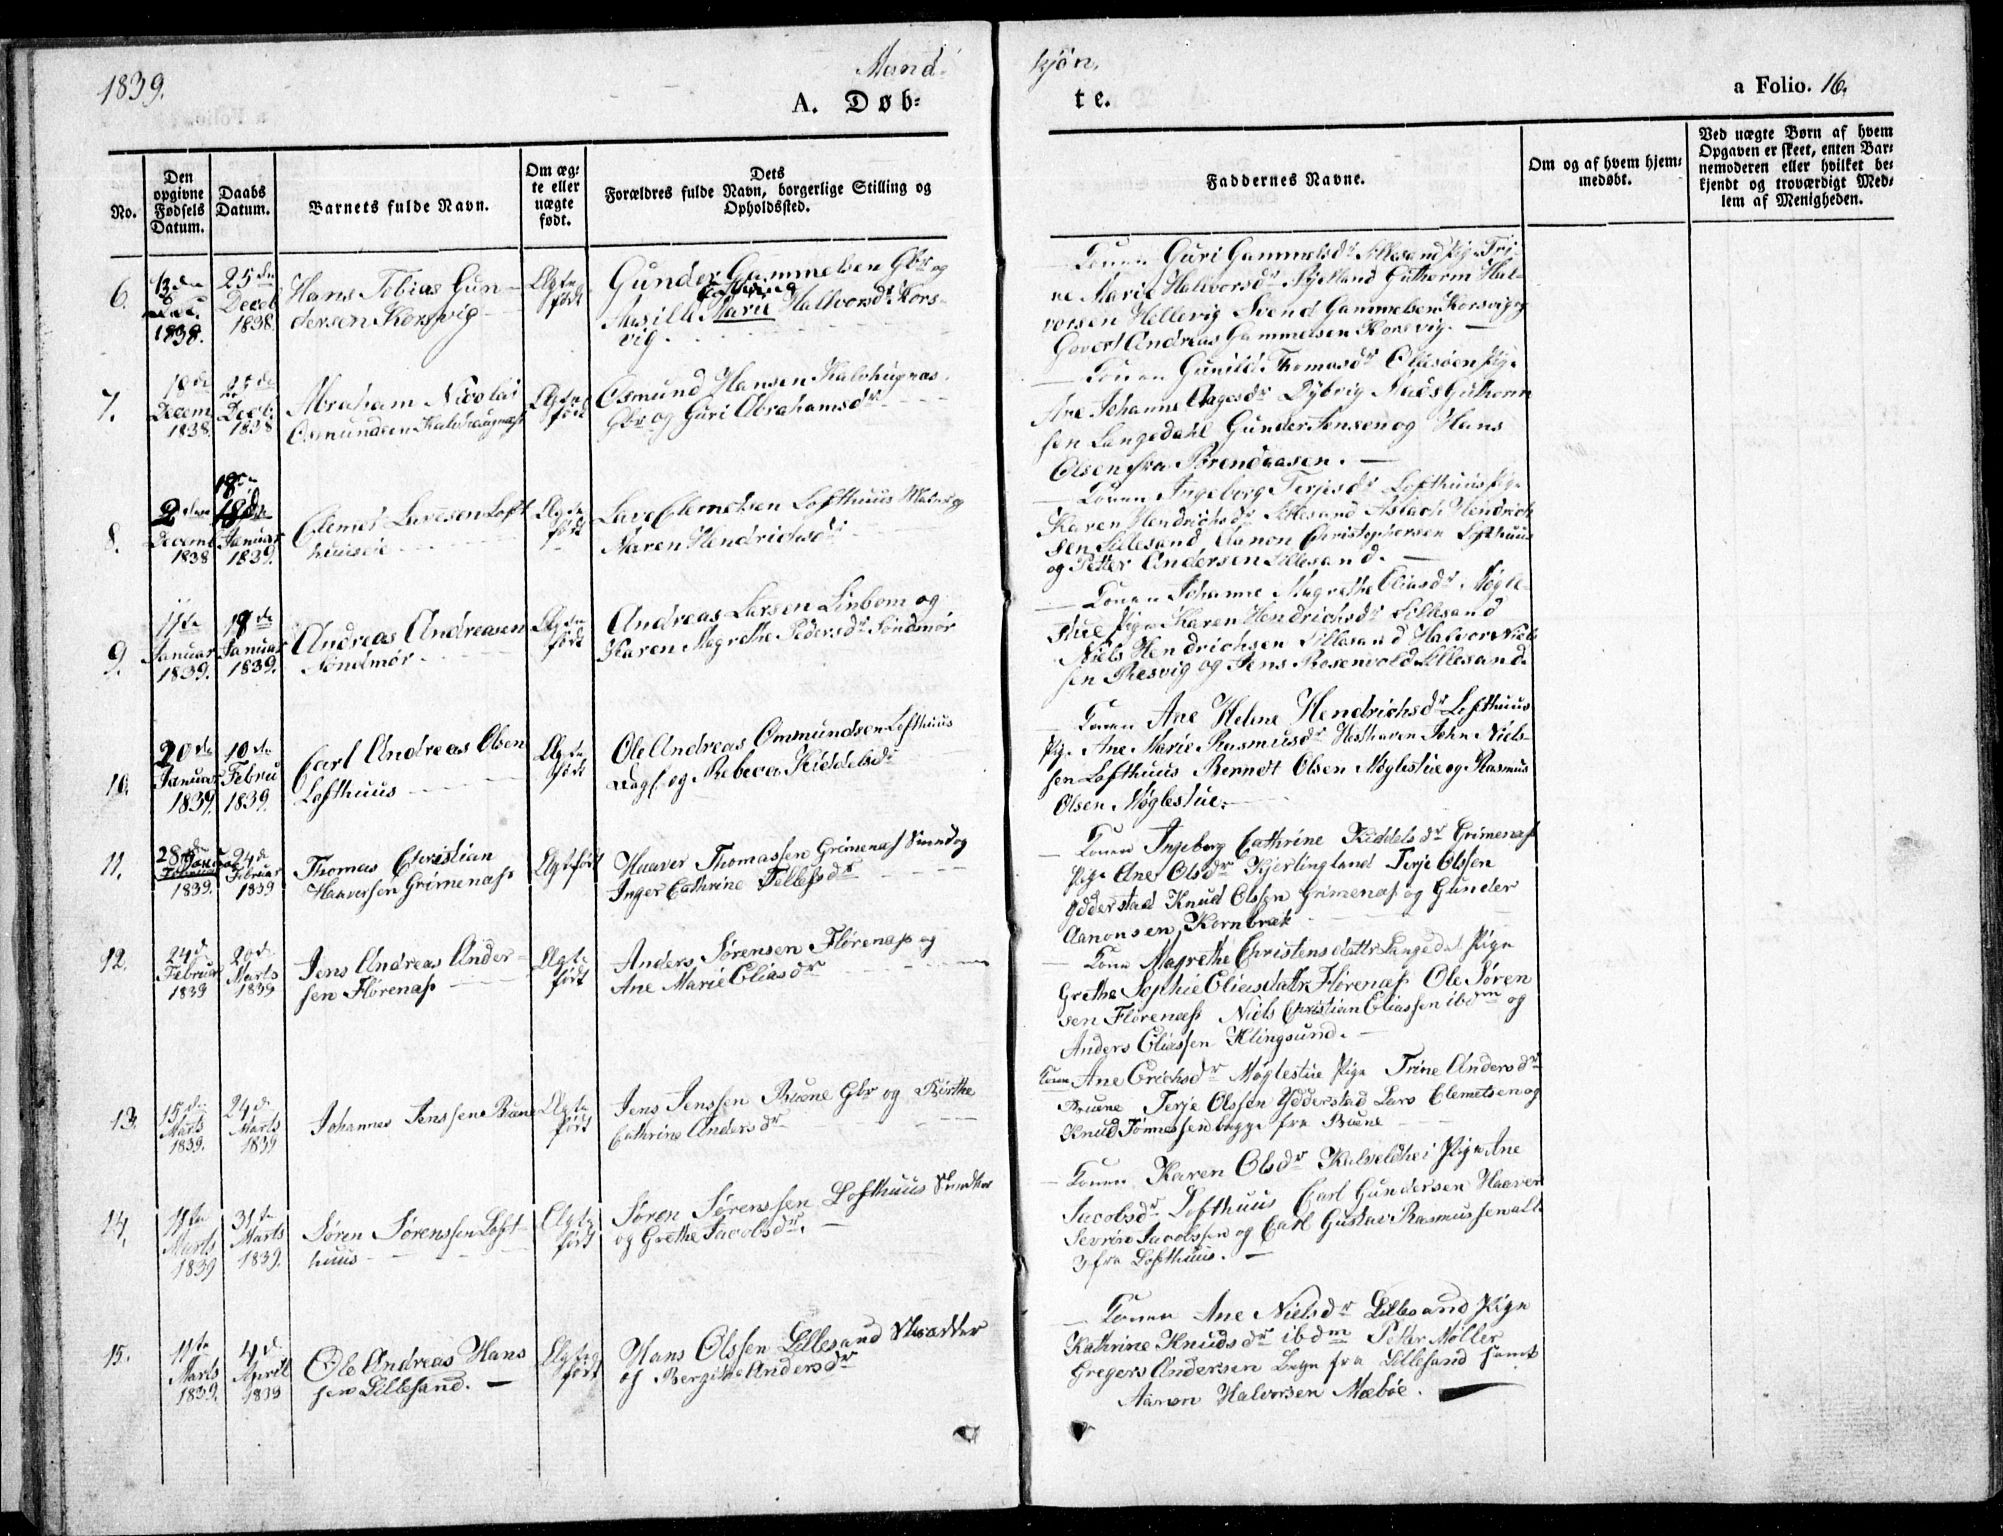 1839.
Mand-
kjøn.
A. Døb-
te.
a Folio. 16.
No.
Den opgivne Fødsels Datum.
Daabs Datum.
Barnets fulde Navn.
Om ægte eller uægte født.
Dets Forældres fulde Navn, borgerlige Stilling og Opholdssted.
Faddernes Navne.
Om og af hvem hjemmedøbt.
Ved uægte Børn af hvem Opgaven er skeet, enten Barnemoderen eller hvilket bekjendt og troværdigt Medlem af Menigheden.
6.
13de
Dec.
1838.
25de
Deceb
1838.
Hans Tobias Gun-
dersen Korsvig
Ægte
født
Gunder Gammelsen Gbr og
Aasille Marie Hallvorsdr Kors-
vig.
Konen Guri Gammelsdr Lillesand Pige Tri-
ne Marie Halvorsdr Guthorm Hal-
vorsen Hellevig Svend Gammelsen Korsvig og
Govert Andreas Gammelsen Korsvig.
7.
18de
Decem
1838.
25de
Deceb.
1838
Abraham Nicolai
Osmundsen
Ægte
født
Osmund Hansen
Gbr og Guri Abrahamsdr
Konen Gunild Thomasdr Pige
Ane Johanne Aagesdr Dybvig Guthorm
sen Langedahl Gunder Jensen og Hans
Olsen fra Brendaasen.
8.
2den
Decemb
1838
18de
18de
Januar
1839.
Clemet Lavesen Loft
huuseie
Ægte
født
Lave Clemetsen Lofthuus
Maren Hendrichsdr
Konen Ingeborg Terjesdr Lofthuus Pige
Karen Hendrichsdr Lillesand Aslach Hendrich
sen Lillesand Aanon Christophersen Lofthuus
og Petter Andersen Lillesand.
9.
11te
Januar
1839.
18de
Januar
1839.
Andreas Andreasen
Søndmør
Ægte
født
Andreas Larsen Linbom og
Karen Magrethe Pedersdr Søndmør
Konen Johanne Magrethe Eliasdr Møgle-
stue Pige Karen Hendrichsdr Lillesand
Niels Hendrichsen Lillesand Halvor Niels
sen Resvig og Jens Rosenvold Lillesand.
10.
20de
Januar
1839.
10de
Febru
1839.
Carl Andreas Olsen
Lofthuus
Ægte
født
Ole Andreas Ommundsen Lofthuus
og Rebeca Kiddelsdr
Konen Ane Helene Hendrichsdr Lofthuus
Pige Ane Marie Rasmusdr Hesthaven John Niels-
sen Lofthuus Berndt Olsen Møglestue og Rasmus
Olsen Møglestue.
11.
28de
Januar
1839.
24d
Februar
1839
Thomas Christian
Haaversen Grimenæs
Ægte født
Haaver Thomassen Grimenæs og
Inger Cathrine Tellefsdr
Konen Ingeborg Cathrine Kiddelsdr Grimenæs
Pige Ane Olsdr Kjerlingland Terje Olssen
Ydderstad Knud Olssen Grimenæs og Gunder
Aanonsen Kornbrek
12.
24d
Februar
1839
20d.
Marts
1839
Jens Andreas Ander-
sen Flørenæs
Ægte
født
Anders Sørensen Flørenæs og
Ane Marie Eliasdr
Kone Magrethe Christensdattr Langedal Pige
Grethe Sophie Eliasdattr Flørenæs Ole Søren
sen Flørenæs Niels Christian Eliassen ibdm og
Anders Eliassen Klingsund.
13.
15de
Marts
1839.
24d
Marts
1839
Johannes Jenssen Ruene
Ægte
født
Jens Jenssen Ruene Gbr og Birthe
Cathrine Andersdr
Konen Ane Erichsdr Møglestue Pige Trine Andersdr
Ruene Terje Olssen Ydderstad Lars Clemetsen og
Knud Tønnessen begge fra Ruene
14.
11te
Marts
1839
31te
Marts
1839.
Søren Sørenssen Loft-
huus
Ægte
født
Søren Sørenssen Lofthuus
og Grethe Jacobsdr.
Konen Karen Olsdr Kalveldhei Pige Ane
Jacobsdr Lofthuus Carl Gundersen Haaver
Sevrin Jacobssen og Carl Gustav Rasmussen alle
3 fra Lofthuus.
15.
11te
Marts
1839.
4d
April
1839
Ole Andreas Hans
sen Lillesand.
Ægte
født
Hans Olssen Lillesand Skrædder
og Bergithe Andersdr
Konen Ane Nielsdr Lillesand Pige
Kathrine Knudsdr ibdm Peter Møller
Gregers Andersen Begge fra Lillesand samt
Aanon Halvorsen Mæbøe.